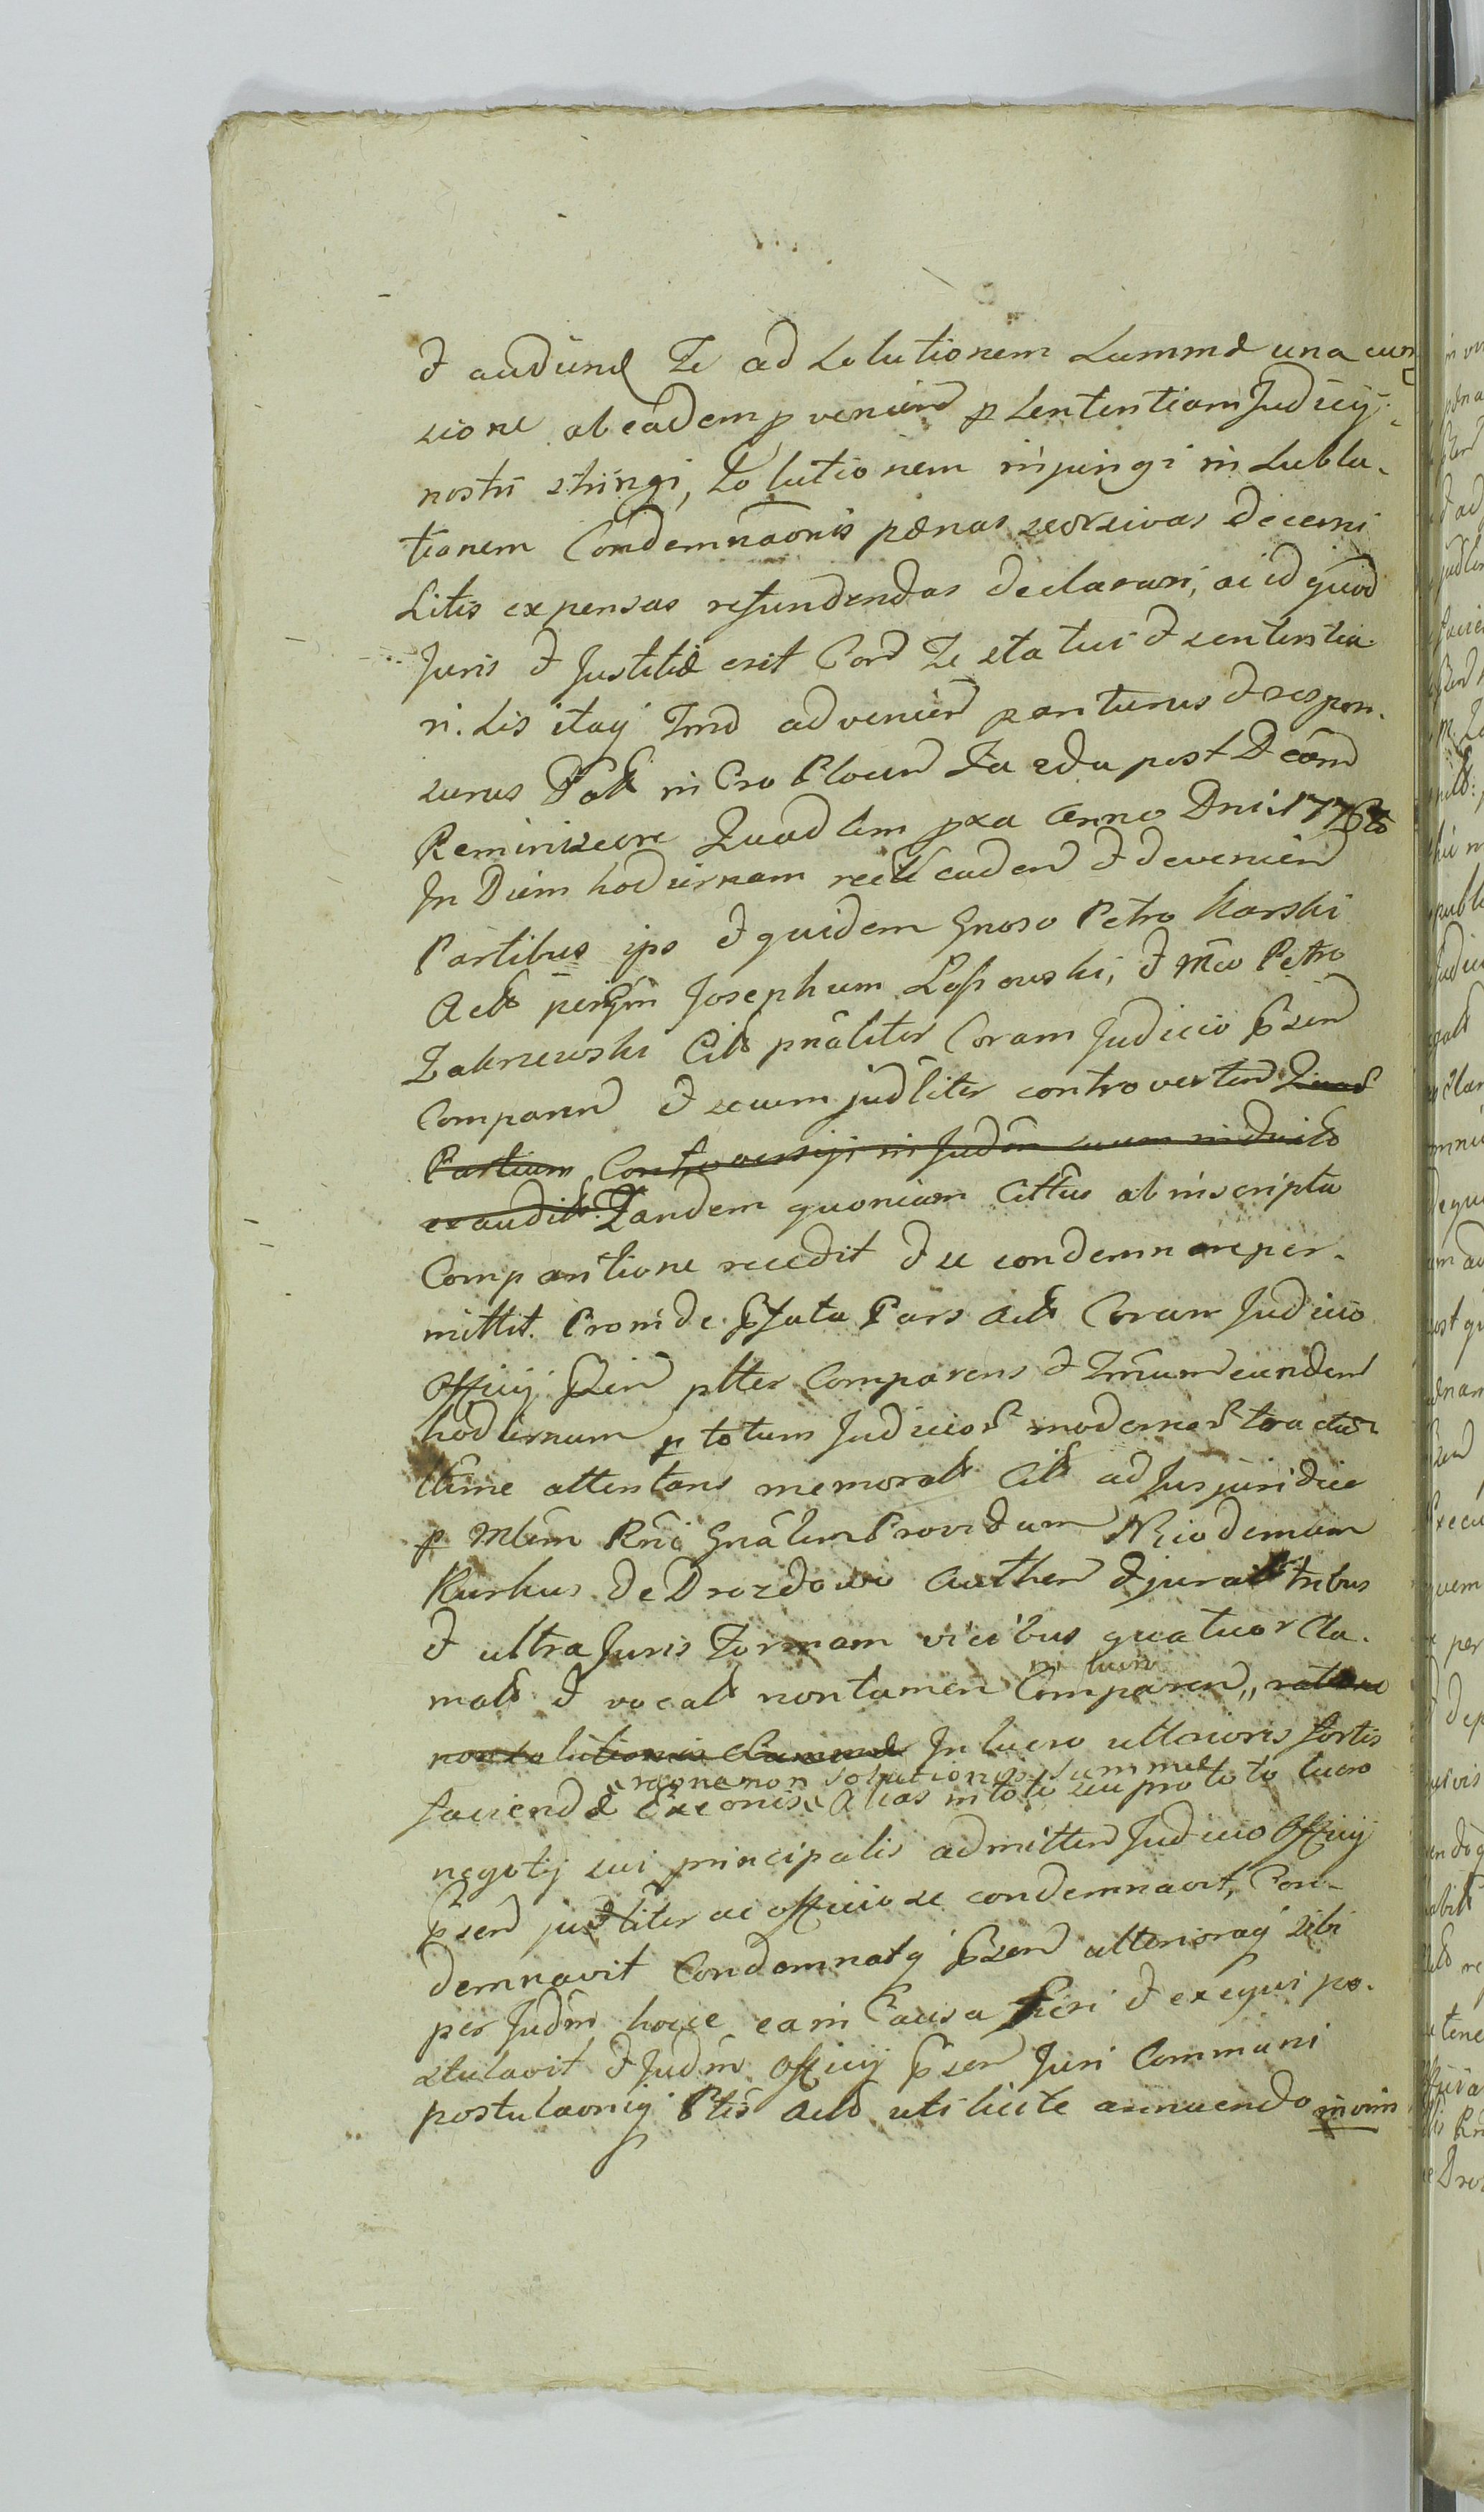 & audiend Te ad Solutionem Summæ una cum
sione ab eadem pvenien p Sententiam Judicij
nostri stringi, Solutionem injungi in Subla-
tionem Condemnaonis pænas seorsivas decerni
Litis expensas refundendas declarari, ac id quod
Juris & Justitiæ erit Cord Te statui & sententia-
ri. Sis itaq Tmd advenien pariturus & respon-
surus Dat in Cro Plocen Fa 2da post Dcam
Reminiscere Quadlem pxa Anno Dni 1776to
In Diem hodiernam recte caden & devenien
Partibus ipo & quidem Gnoso Petro Karski
Act per Gm Josephum Lossowski, & Mco Petro
Zakrzewski Citt pnaliter Coram Judicio psen
Comparen & secum judliter controverten
Partium Controversijs in Judm suum induct
exaudit Tandem quoniam Cittus ab inscripta
Comparitione recedit & se condemnare per-
mittit. Proinde pfata Pars Act Coram Judicio
Officij psen plter Comparens & Tmum eundem
hodiernum p totum Judicior modernor tractum
ltime attentans memorat Citt ad Jus juridice
p Mlem Rni Gnalem Providum Nicodemum
Kurkus de Drozdowo Authen & jurat tribus
& ultra Juris Formam vicibus quatuor Cla-
mat & vocat non tamen Comparen, ratione
in lucro
non solutionis Summæ In lucro ulterioris fortis
raone non solutionis summæ
faciendæ Exeonis, Alias in toto seu pro toto lucro
negotij sui principalis admitten Judicio Officij
psen judliter ac officiose condemnavit, Con-
demnavit Condemnatq psen ulterioraq sibi
per Judm hocce ea in Causa fieri & exequi po-
stulavit, & Judm Officij psen Juri Communi
postulaoniq Ptis Act uti licite annuendo in vim